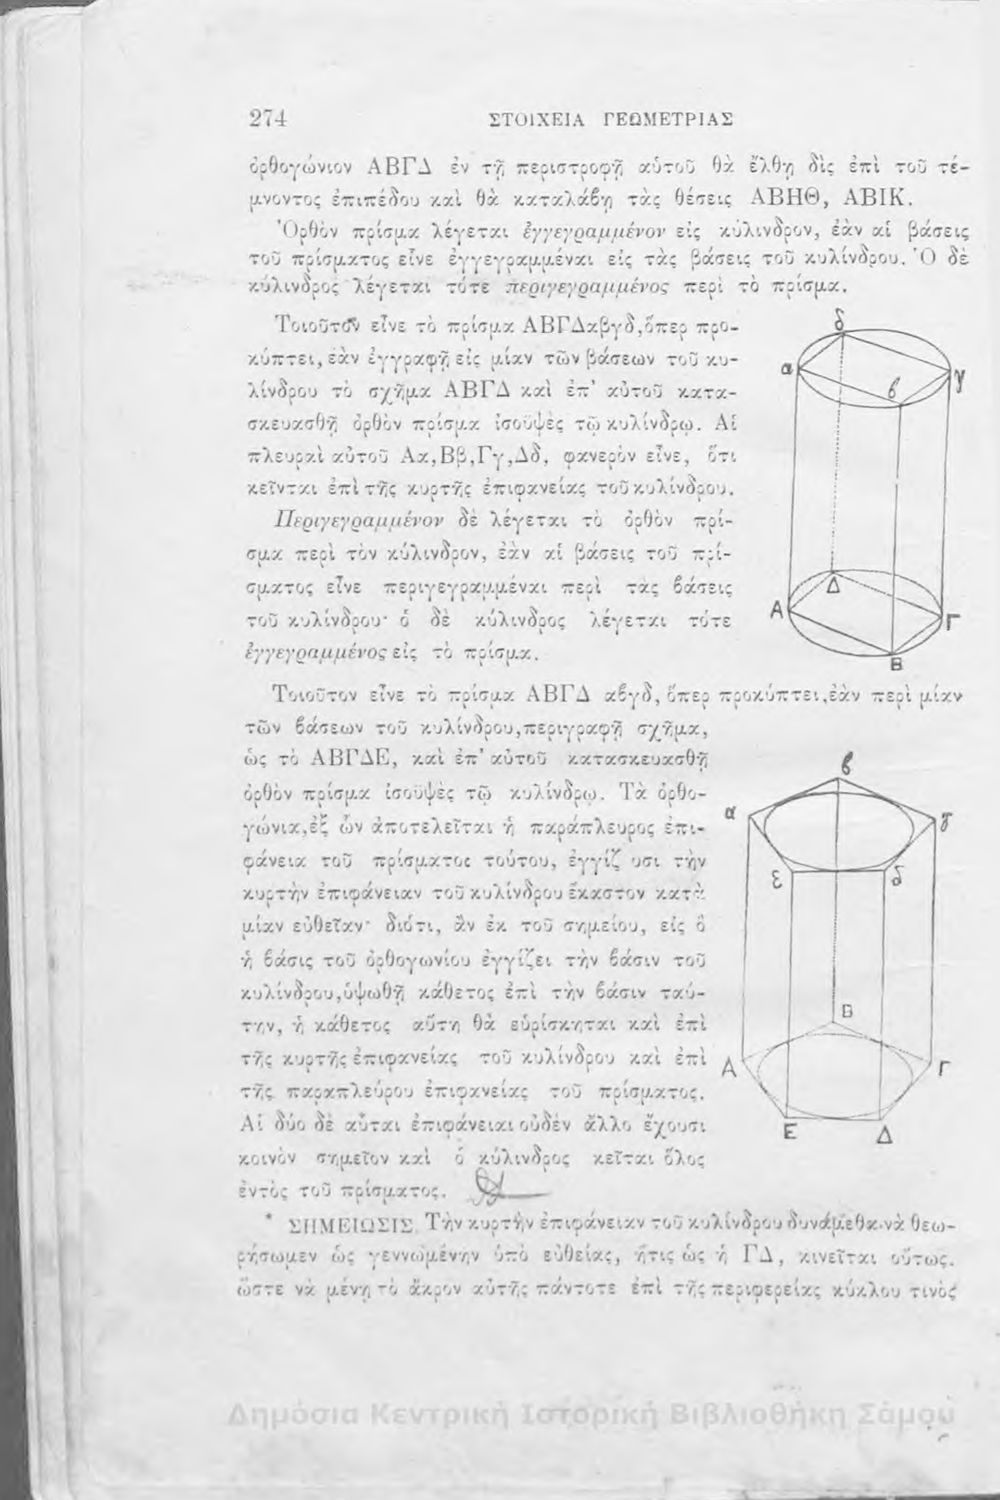 274 ΣΤΟΙΧΕΙΑ ΓΕΩΜΕΤΡΙΑΣ
ὀρθογώνιον ΑΒΓΔ ἐν τῇ περιστροφῇ αὐτοῦ θὰ ἔλθῃ δὶς ἐπὶ τοῦ τέ-
μνοντος ἐπιπέδου καὶ θὰ καταλάβῃ τὰς θέσεις ΑΒΗΘ, ΑΒΙΚ.
Ὀρθὸν πρίσμα λέγεται ἐγγεγραμμένον εἰς κύλινδρον, ἐὰν αἱ βάσεις
τοῦ πρίσματος εἶνε ἐγγεγραμμέναι εἰς τὰς βάσεις τοῦ κυλίνδρου. Ὁ δὲ
κύλινδρος λέγεται τότε περιγεγραμμένος περὶ τὸ πρίσμα.
Τοιοῦτον εἶνε τὸ πρίσμα ΑΒΓΔαβγδ, ὅπερ προ-
κύπτει, ἐὰν ἐγγραφῇ εἰς μίαν τῶν βάσεων τοῦ κυ-
λίνδρου τὸ σχῆμα ΑΒΓΔ καὶ ἐπ' αὐτοῦ κατα-
σκευασθῇ ὀρθὸν πρίσμα ἰσοϋψὲς τῷ κυλίνδρῳ. Αἱ
πλευραὶ αὐτοῦ Αα, Ββ, Γγ, Δδ, φανερὸν εἶνε, ὅτι
κεῖνται ἐπὶ τῆς κυρτῆς ἐπιφανείας τοῦ κυλίνδρου.
Περιγεγραμμένον δὲ λέγεται τὸ ὀρθὸν πρί-
σμα περὶ τὸν κύλινδρον, ἐὰν αἱ βάσεις τοῦ πρί-
σματος εἶνε περιγεγραμμέναι περὶ τὰς βάσεις
τοῦ κυλίνδρου· ὁ δὲ κύλινδρος λέγεται τότε
ἐγγεγραμμένος εἰς τὸ πρίσμα.
δ
α
β
γ
Δ
Α
Γ
Β
Τοιοῦτον εἶνε τὸ πρίσμα ΑΒΓΔ αβγδ, ὅπερ προκύπτει, ἐὰν περὶ μίαν
τῶν βάσεων τοῦ κυλίνδρου, περιγραφῇ σχῆμα,
ὡς τὸ ΑΒΓΔΕ, καὶ ἐπ' αὐτοῦ κατασκευασθῇ
ὀρθὸν πρίσμα ἰσοϋψὲς τῷ κυλίνδρῳ. Τὰ ὀρθο-
γώνια, ἐξ ὧν ἀποτελεῖται ἡ παράπλευρος ἐπι-
φάνεια τοῦ πρίσματος τούτου, ἐγγίζουσι τὴν
κυρτὴν ἐπιφάνειαν τοῦ κυλίνδρου ἕκαστον κατὰ
μίαν εὐθεῖαν· διότι, ἂν ἐκ τοῦ σημείου, εἰς ὃ
ἡ βάσις τοῦ ὀρθογωνίου ἐγγίζει τὴν βάσιν τοῦ
κυλίνδρου, ὑψωθῇ κάθετος ἐπὶ τὴν βάσιν ταύ-
την, ἡ κάθετος αὕτη θὰ εὑρίσκηται καὶ ἐπὶ
τῆς κυρτῆς ἐπιφανείας τοῦ κυλίνδρου καὶ ἐπὶ
τῆς παραπλεύρου ἐπιφανείας τοῦ πρίσματος.
Αἱ δύο δὲ αὗται ἐπιφάνειαι οὐδὲν ἄλλο ἔχουσι
κοινὸν σημεῖον καὶ ὁ κύλινδρος κεῖται ὅλος
ἐντὸς τοῦ πρίσματος.
β
α
γ
ε
δ
Β
Α
Γ
Ε
Δ
* ΣΗΜΕΙΩΣΙΣ. Τὴν κυρτὴν ἐπιφάνειαν τοῦ κυλίνδρου δυνάμεθα νὰ θεω-
ρήσωμεν ὡς γεννωμένην ὑπὸ εὐθείας, ἥτις ὡς ἡ ΓΔ, κινεῖται οὕτως,
ὥστε νὰ μένῃ τὸ ἄκρον αὐτῆς πάντοτε ἐπὶ τῆς περιφερείας κύκλου τινὸς
Δημόσια Κεντρική Ιστορική Βιβλιοθήκη Σάμου